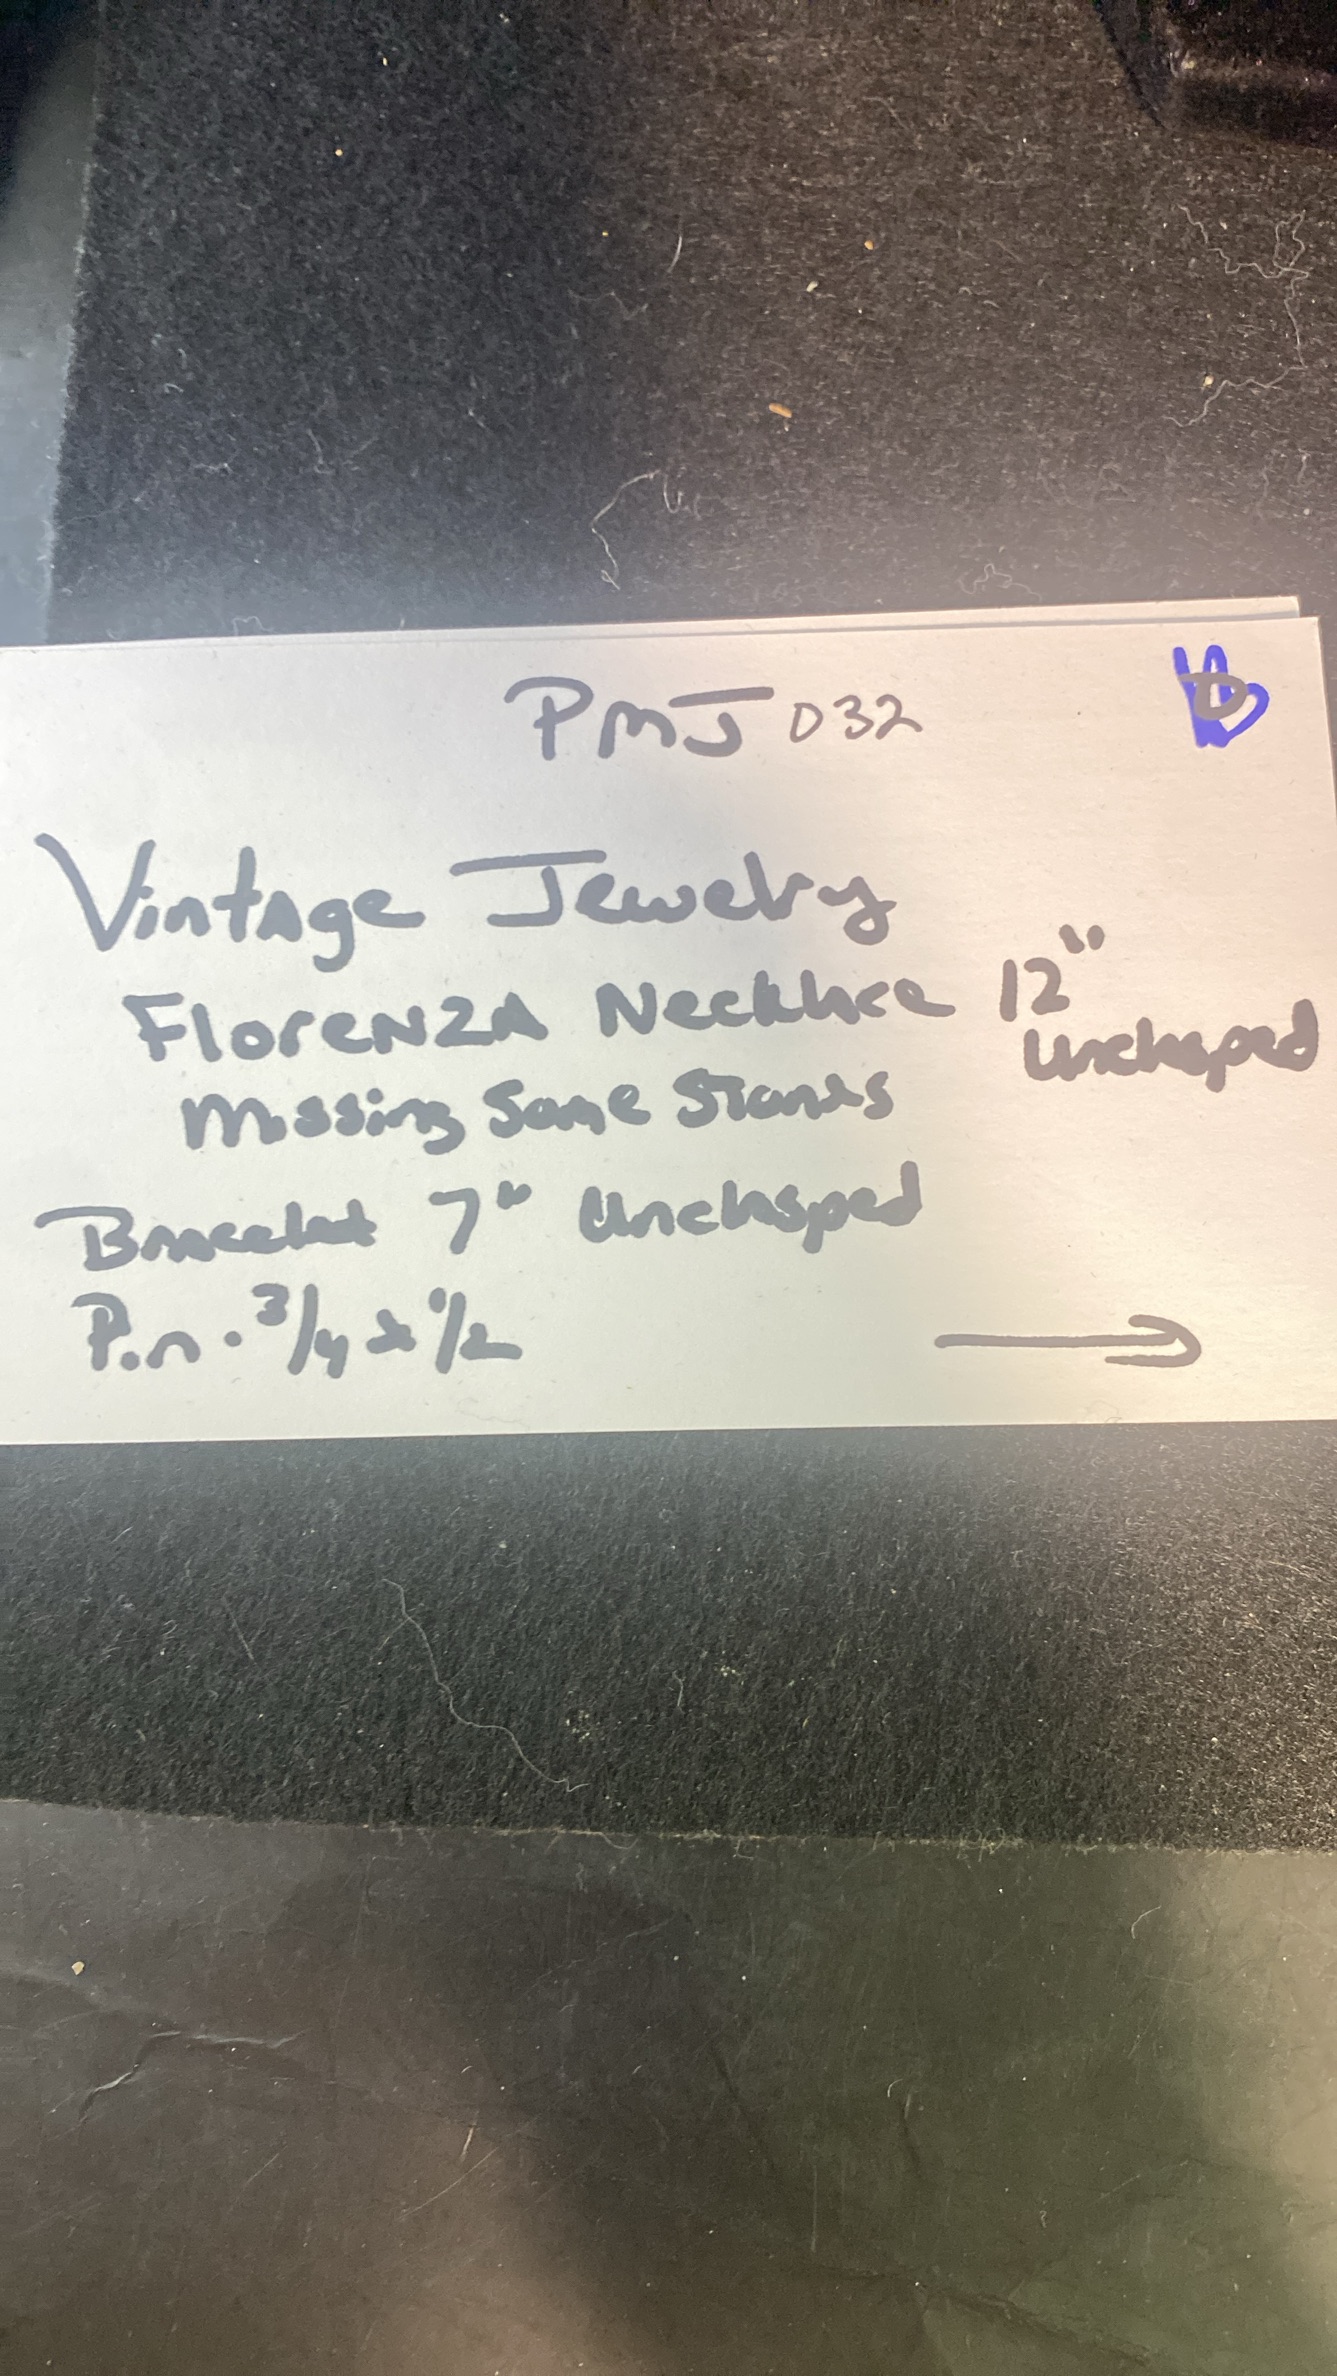 PMJ 032
Vintage Jewelry
Florenza Necklace 12"
Unclasped
Missing Some Stones
Bracelet 7" Unclasped
Pin. 3/4 x 1/2